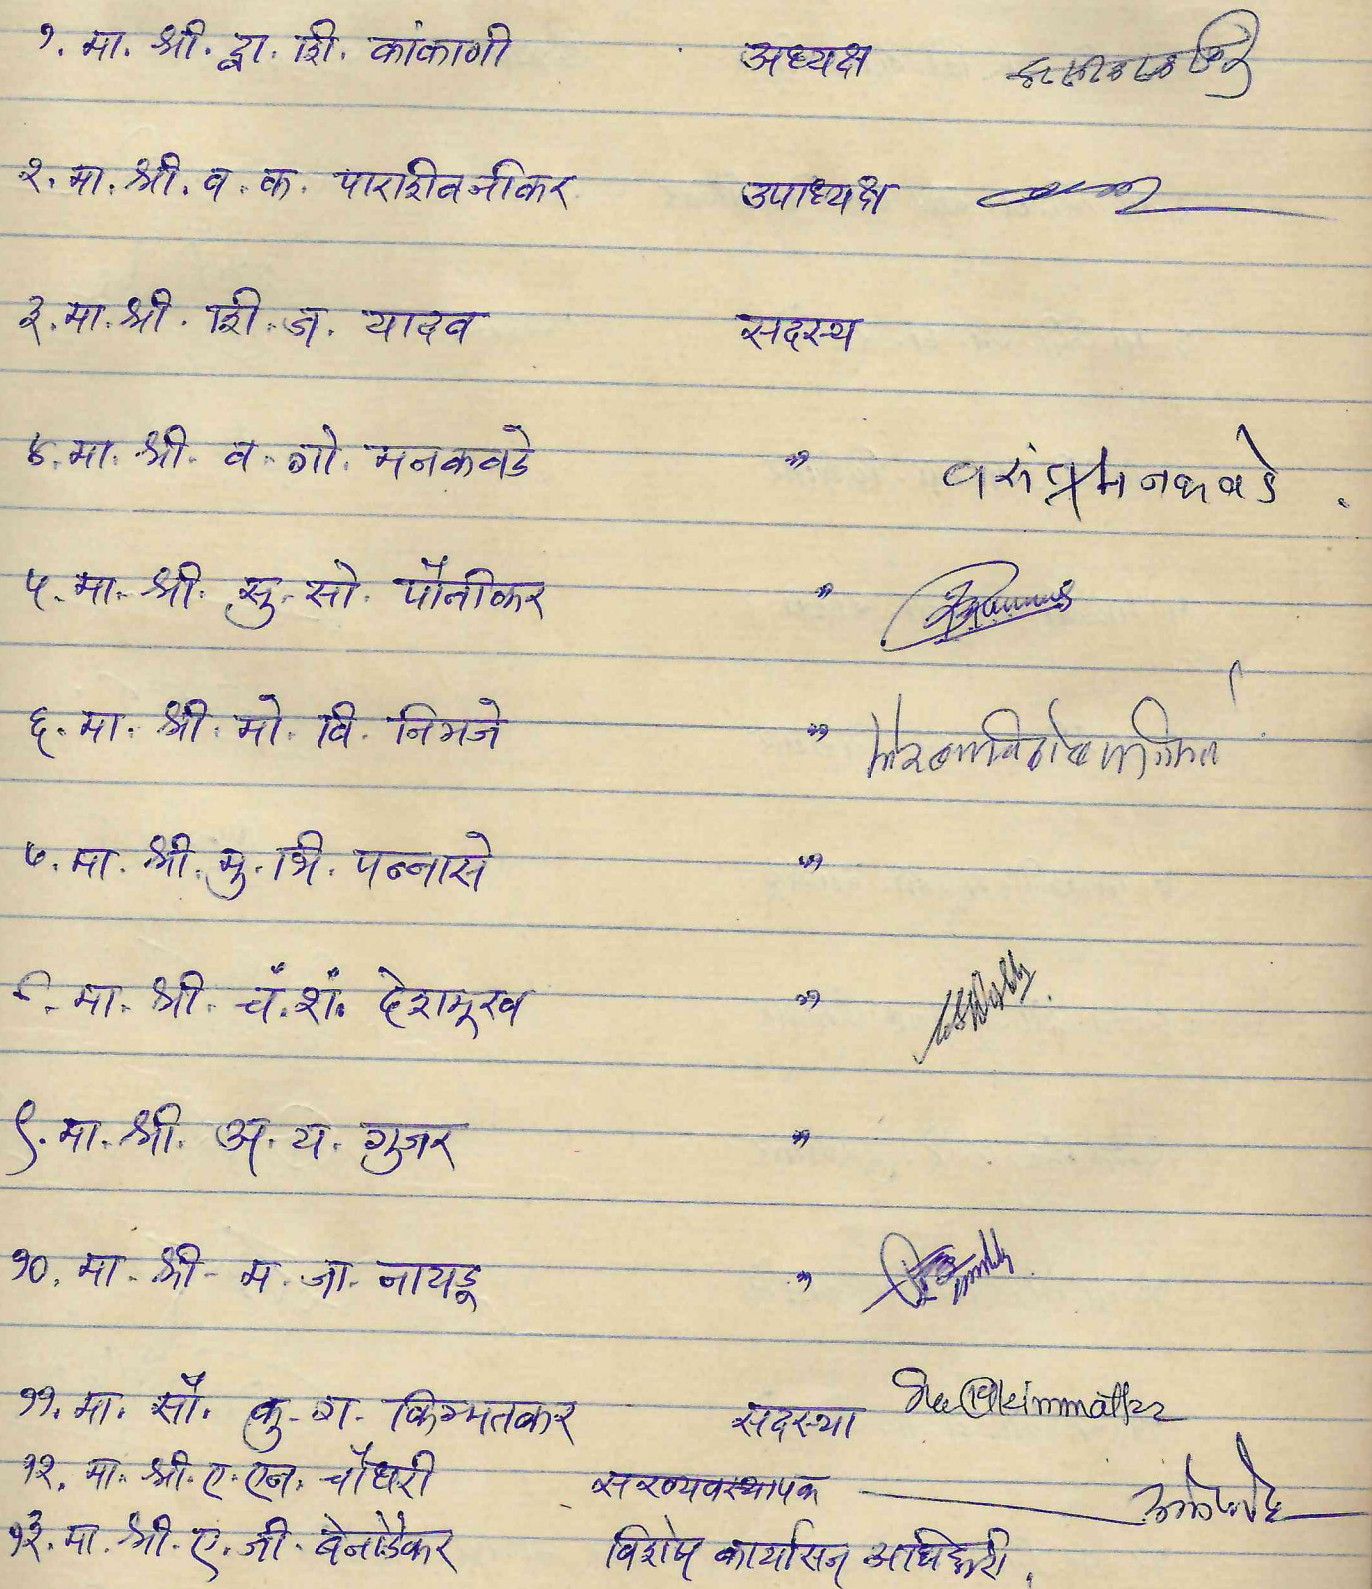 १. मा. श्री. द्वा. शि. कांकाणी अध्यक्ष
२. मा. श्री. व. क. पाराशीवनीकर उपाध्यक्ष
३. मा. श्री. शि. ज. यादव सदस्य
४. मा. श्री. व. गो. मनकवडे " वसंत मनकवडे
५. मा. श्री. सु. सो. पौनीकर "
६. मा. श्री. मो. वि. निमजे "
७. मा. श्री. मु. त्रि. पन्नासे "
८. मा. श्री. चं. शं. देशमूख "
९. मा. श्री. अ. य. गुजर "
१०. मा. श्री. म. जा. नायडू "
११. मा. सौ. कु. ग. किम्मतकर सदस्या
१२. मा. श्री. ए. एन. चौधरी सरव्यवस्थापक
१३. मा. श्री. ए. जी. बेनोडेकर विशेष कार्यासन अधिकारी.